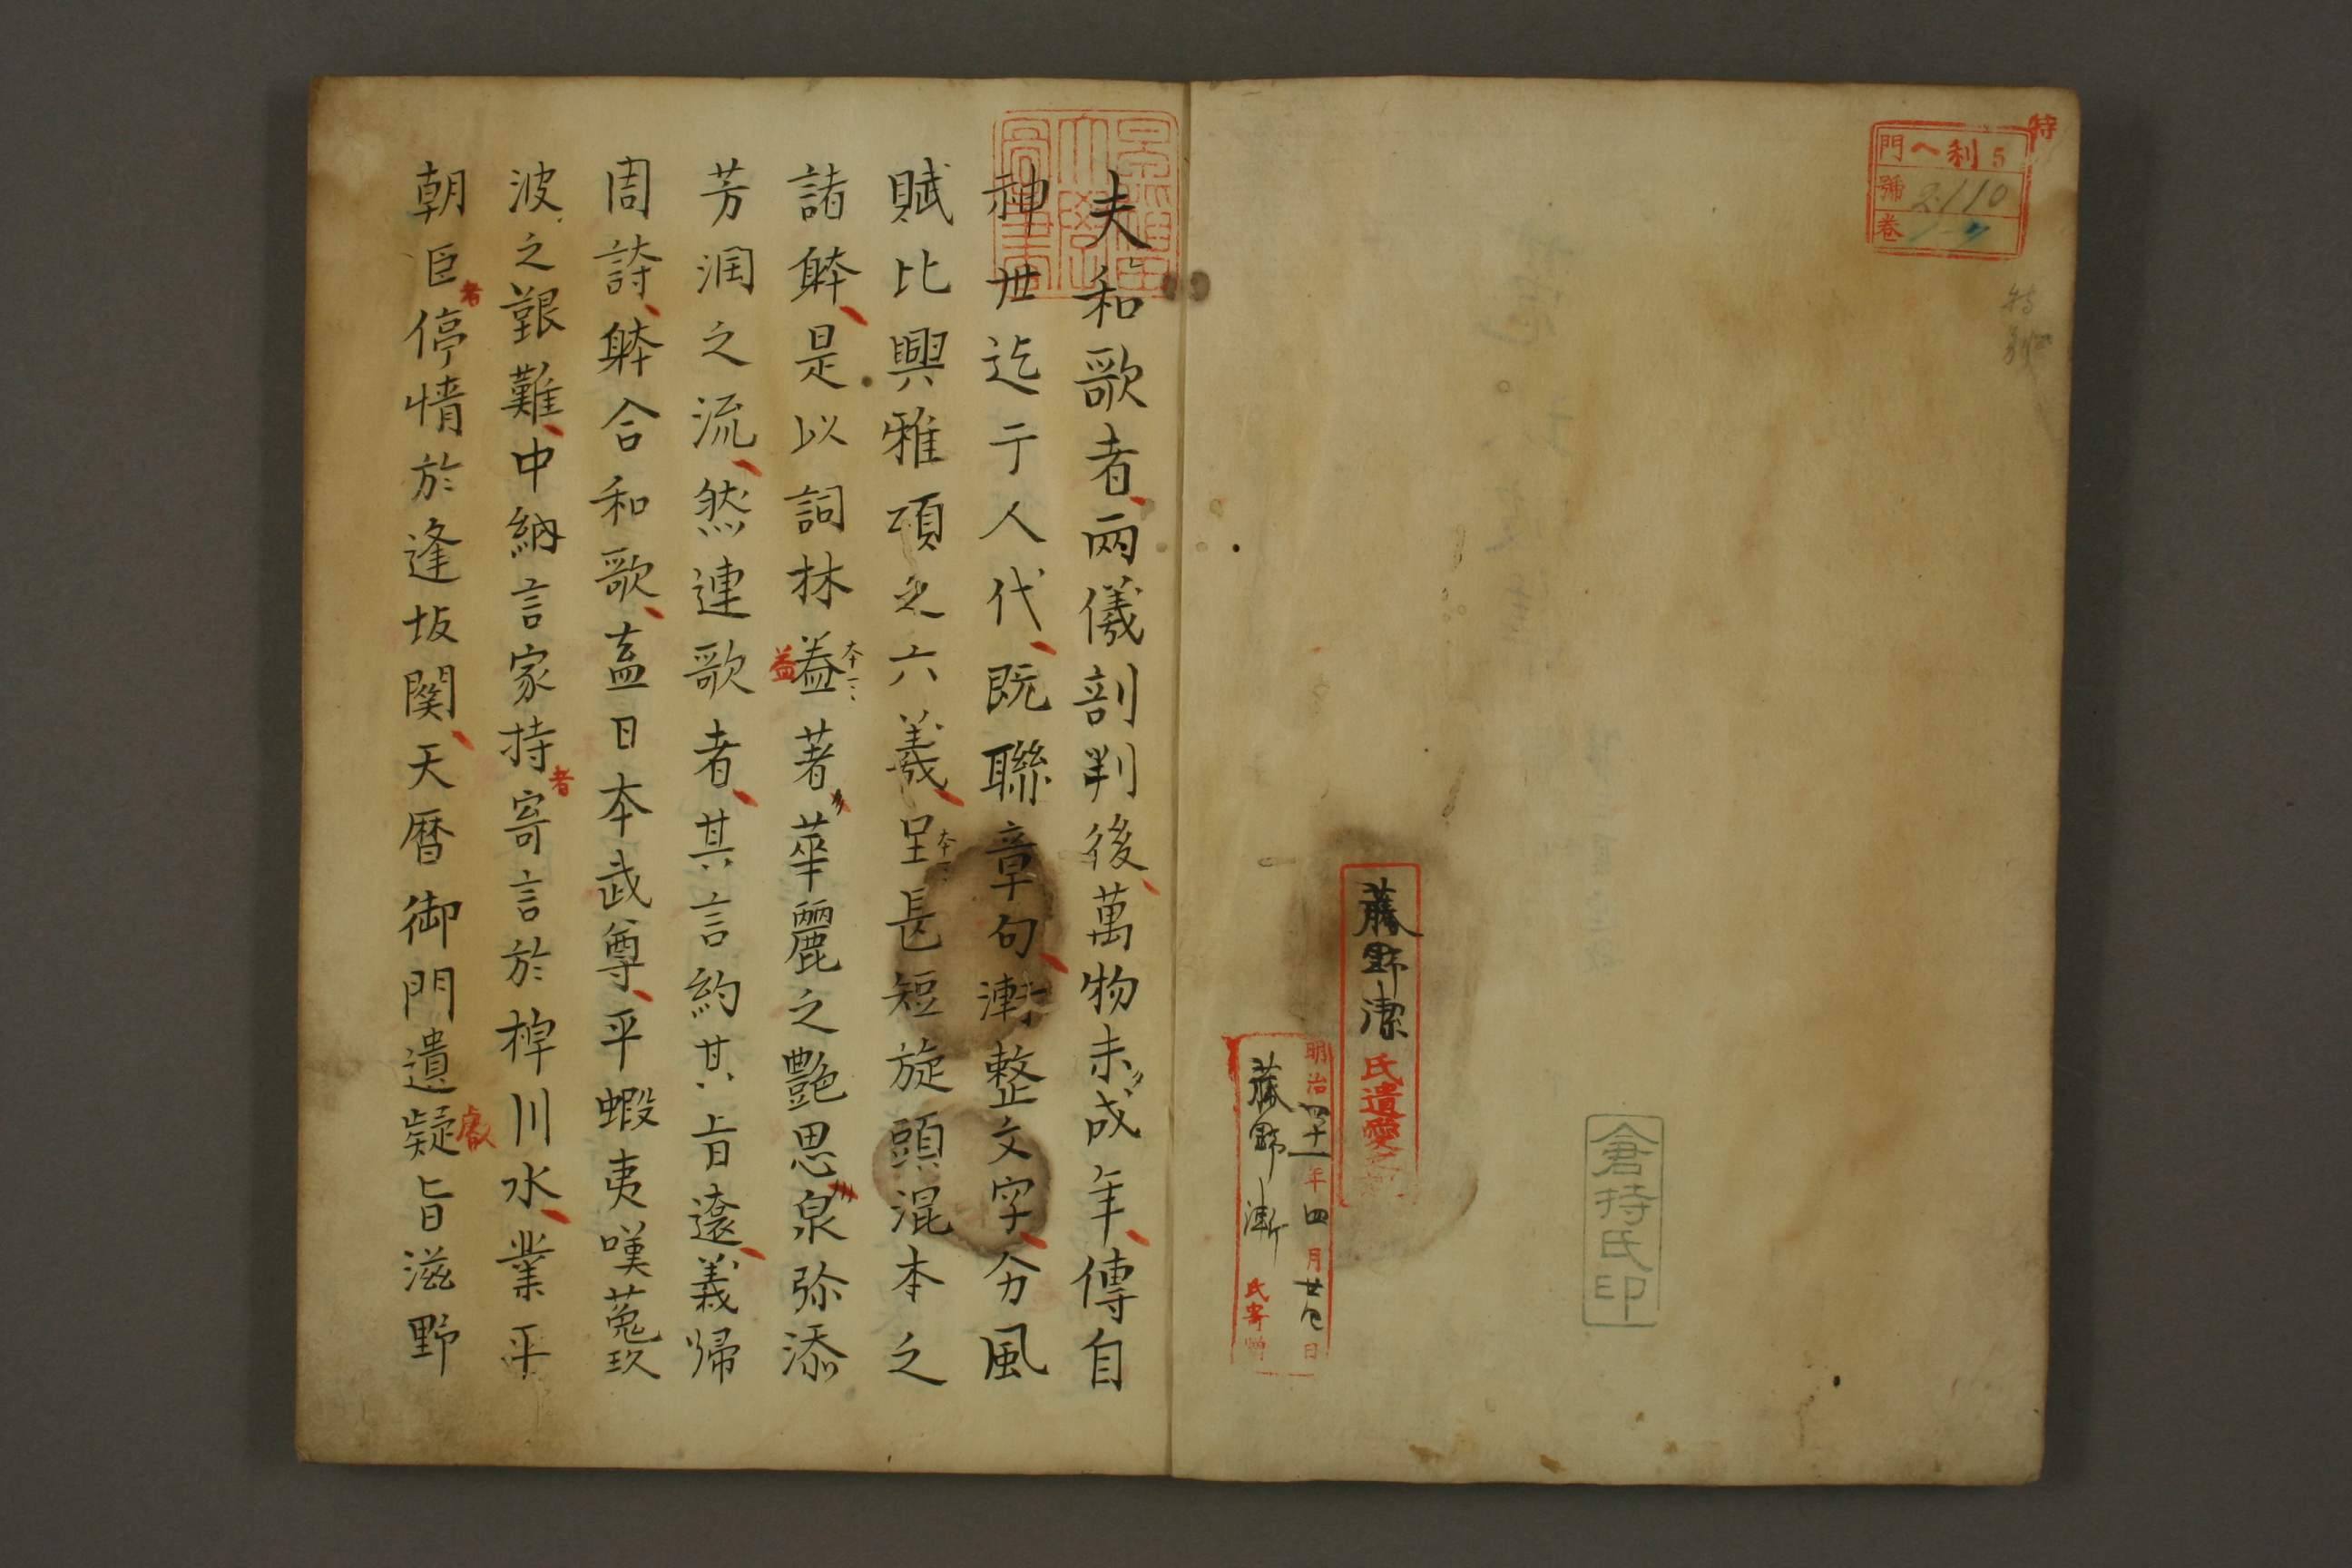 特
門 ヘ利 5
號 2110
卷 1-7
特別
藤野潔氏遺愛
明治四十一年四月廿四日
藤野漸氏寄贈
倉持氏印
夫和歌者兩儀剖判後萬物未成年傳自
神世迄于人代既聯章句漸整文字分風
賦比興雅頌之六義呈長短旋頭混本之
本
諸躰是以詞林葢著華麗之艶思泉弥添
本
益
芳潤之流然連歌者其言約其旨遠義歸
周詩躰合和歌盍日本武尊平蝦夷嘆菟玖
波之艱難中納言家持寄言於椑川水業平
者
朝臣停情於逢坂関天暦御門遺疑旨滋野
者